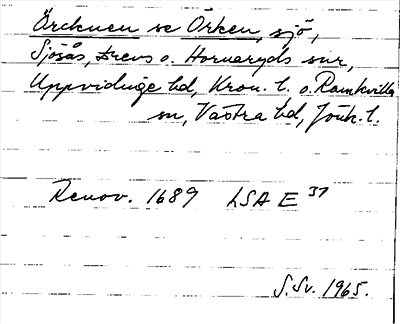 Örcknen se Orken, sjö,
Sjösås, Drevs o. Hornaryds snr,
Uppvidinge hd, Kron. l. o. Ramkvilla
sn, Västra hd, Jönk. l.
Renov. 1689 LSA E 37
S.Sv. 1965.